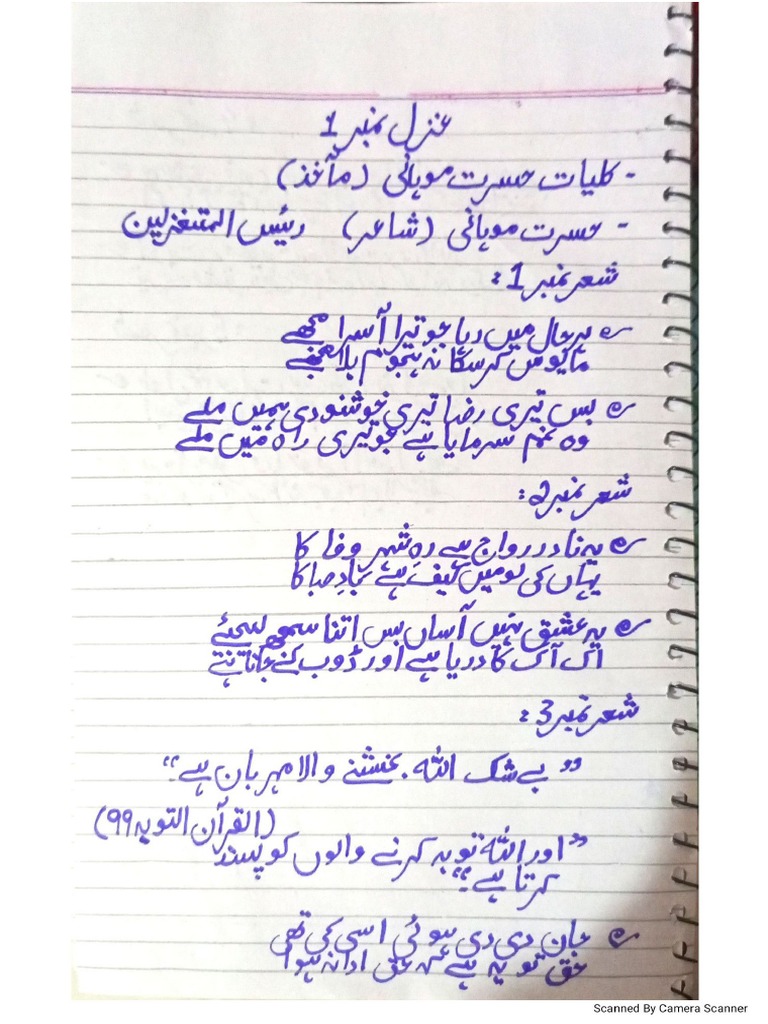 غزل نمبر 1
- کلیات حسرت موہانی (مآخذ)
- حسرت موہانی (شاعر) رئیس المتغزلین
شعر نمبر 1:
ہر حال میں رہا جو تیرا آسرا مجھے
مایوس کر سکا نہ ہجوم بلا مجھے
بس تیری رضا تیری خوشنودی ہمیں ملے
وہ غم سرمایا ہے جو تیری راہ میں ملے
شعر نمبر 2:
یہ نادر رواج ہے رہِ شہر وفا کا
یہاں کی لو میں کیف ہے بادِ صبا کا
یہ عشق نہیں آساں بس اتنا سمجھ لیجئے
اک آگ کا دریا ہے اور ڈوب کے جانا ہے
شعر نمبر 3:
”بے شک اللہ بخشنے والا مہربان ہے۔“
(القرآن التوبہ ۹۹)
”اور اللہ توبہ کرنے والوں کو پسند
کرتا ہے۔“
جان دی دی ہوئی اسی کی تھی
حق تو یہ ہے کہ حق ادا نہ ہوا
Scanned By Camera Scanner